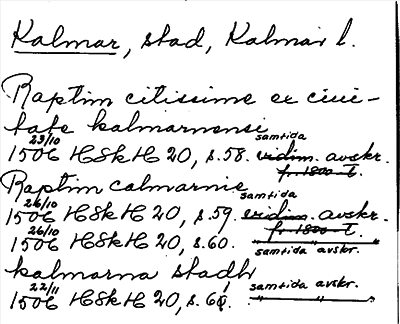 Kalmar, stad, Kalmar l.
Raptim citissime ex civi-
tate kalmarnensi
23/10 samtida
1506 HSkH 20, s. 58. vidim. avskr.
f. 1800-t.
Raptim calmarnie
26/10 samtida
1506 HSkH 20, s. 59. vidim. avskr.
f. 1800-t.
26/10
1506 HSkH 20, s. 60. " "
samtida avskr.
kalmarna stadh
22/11 samtida avskr.
1506 HSkH 20, s. 60. " " "